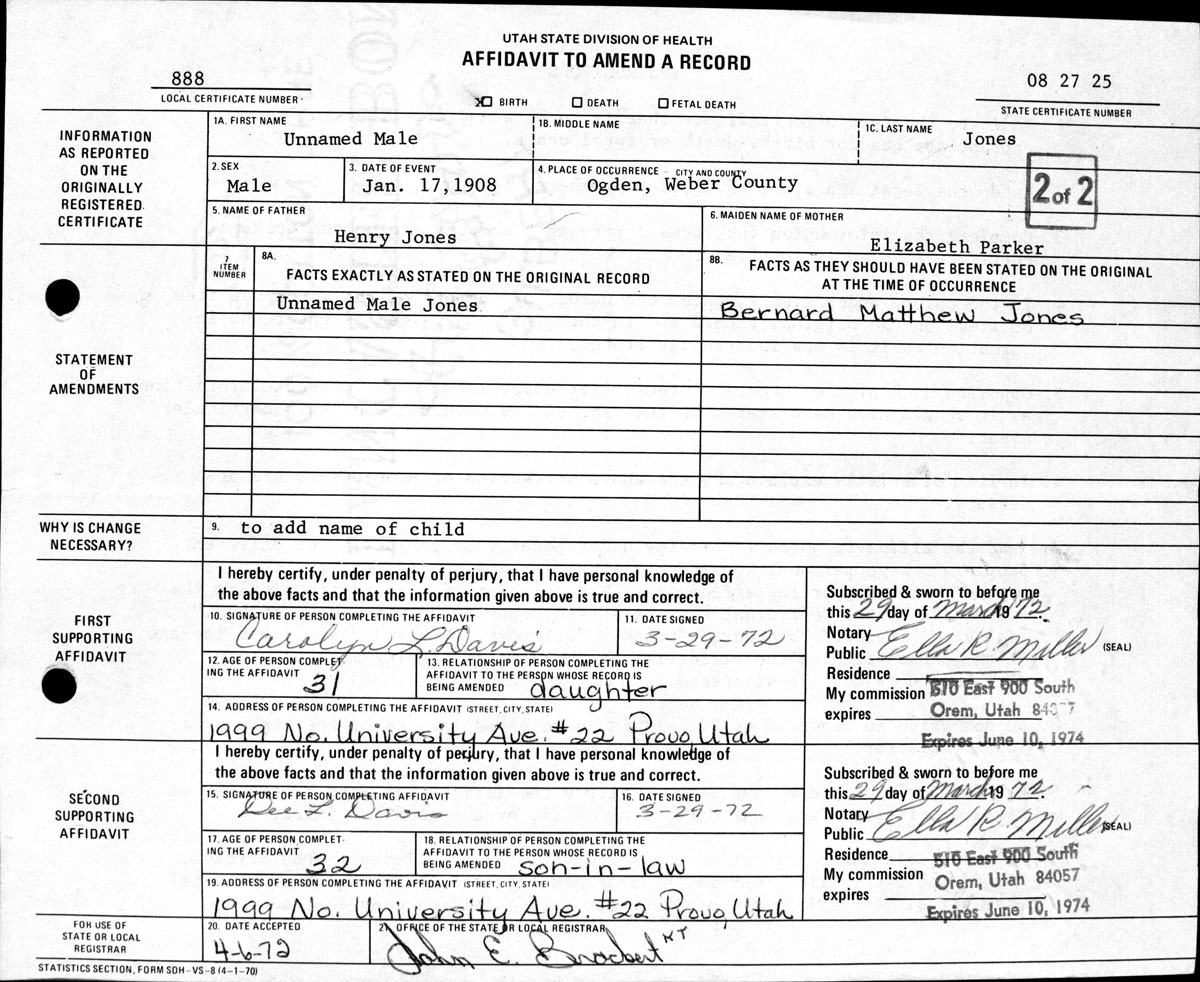 UTAH STATE DIVISION OF HEALTH
AFFIDAVIT TO AMEND A RECORD
888
LOCAL CERTIFICATE NUMBER
X BIRTH DEATH FETAL DEATH
08 27 25
STATE CERTIFICATE NUMBER
INFORMATION
AS REPORTED
ON THE
ORIGINALLY
REGISTERED
CERTIFICATE
1A. FIRST NAME
Unnamed Male
1B. MIDDLE NAME
1C. LAST NAME
Jones
2. SEX
Male
3. DATE OF EVENT
Jan. 17,1908
4. PLACE OF OCCURRENCE - CITY AND COUNTY
Ogden, Weber County
2 of 2
5. NAME OF FATHER
Henry Jones
6. MAIDEN NAME OF MOTHER
Elizabeth Parker
STATEMENT
OF
AMENDMENTS
7
ITEM
NUMBER
8A.
FACTS EXACTLY AS STATED ON THE ORIGINAL RECORD
8B.
FACTS AS THEY SHOULD HAVE BEEN STATED ON THE ORIGINAL
AT THE TIME OF OCCURRENCE
Unnamed Male Jones
Bernard Matthew Jones
WHY IS CHANGE
NECESSARY?
9. to add name of child
FIRST
SUPPORTING
AFFIDAVIT
I hereby certify, under penalty of perjury, that I have personal knowledge of
the above facts and that the information given above is true and correct.
10. SIGNATURE OF PERSON COMPLETING THE AFFIDAVIT
Carolyn L. Davis
11. DATE SIGNED
3-29-72
12. AGE OF PERSON COMPLET-
ING THE AFFIDAVIT
31
13. RELATIONSHIP OF PERSON COMPLETING THE
AFFIDAVIT TO THE PERSON WHOSE RECORD IS
BEING AMENDED daughter
14. ADDRESS OF PERSON COMPLETING THE AFFIDAVIT (STREET, CITY, STATE)
1999 No. University Ave. #22 Provo, Utah
Subscribed & sworn to before me
this 29 day of March 19 72.
Notary
Public Ella R. Miller (SEAL)
Residence
My commission 510 East 900 South
expires Orem, Utah
Expires June 10, 1974
SECOND
SUPPORTING
AFFIDAVIT
I hereby certify, under penalty of perjury, that I have personal knowledge of
the above facts and that the information given above is true and correct.
15. SIGNATURE OF PERSON COMPLETING AFFIDAVIT
Dee L. Davis
16. DATE SIGNED
3-29-72
17. AGE OF PERSON COMPLET-
ING THE AFFIDAVIT
32
18. RELATIONSHIP OF PERSON COMPLETING THE
AFFIDAVIT TO THE PERSON WHOSE RECORD IS
BEING AMENDED son-in-law
19. ADDRESS OF PERSON COMPLETING THE AFFIDAVIT (STREET, CITY, STATE)
1999 No. University Ave. #22 Provo, Utah
Subscribed & sworn to before me
this 29 day of March 19 72.
Notary
Public Ella R. Miller (SEAL)
Residence 510 East 900 South
My commission Orem, Utah 84057
expires
Expires June 10, 1974
FOR USE OF
STATE OR LOCAL
REGISTRAR
20. DATE ACCEPTED
4-6-72
21. OFFICE OF THE STATE OR LOCAL REGISTRAR
John E. Brockert KT
STATISTICS SECTION, FORM SDH-VS-8 (4-1-70)